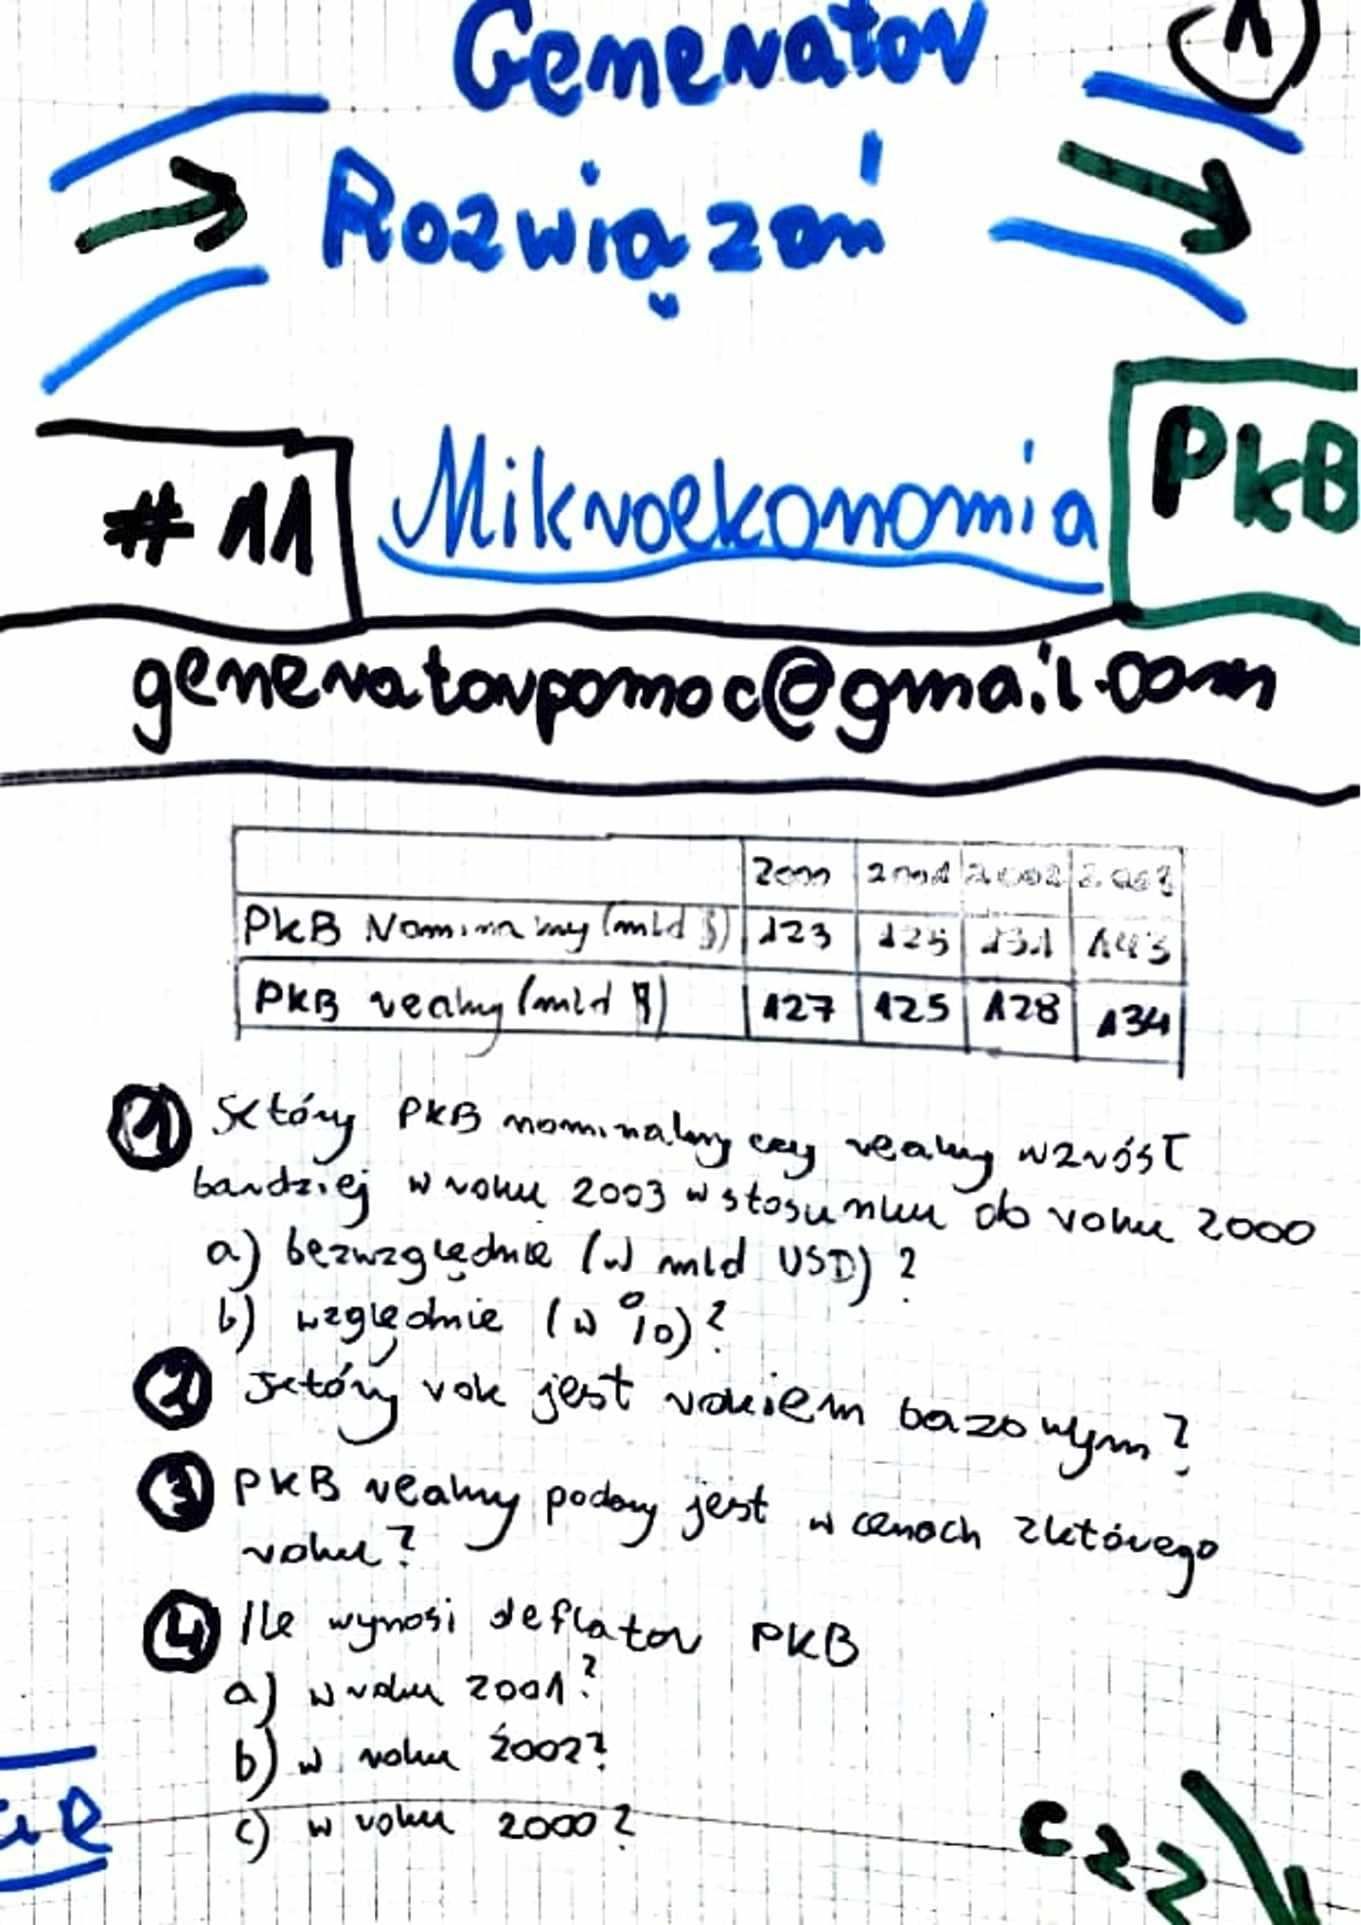 Generator
1
Rozwiązań
# 11
Mikroekonomia
PKB
generatorpomoc@gmail.com
2000 2001 2002 2003
PKB Nominalny (mld $) 123 125 131 143
PKB realny (mld $) 127 125 128 134
1 Który PKB nominalny czy realny wzrósł
bardziej w roku 2003 w stosunku do roku 2000
a) bezwzględnie (w mld USD)?
b) względnie (w %)?
2 Który rok jest rokiem bazowym?
3 PKB realny podany jest w cenach z którego
roku?
4 Ile wynosi deflator PKB
a) w roku 2001?
b) w roku 2002?
c) w roku 2000?